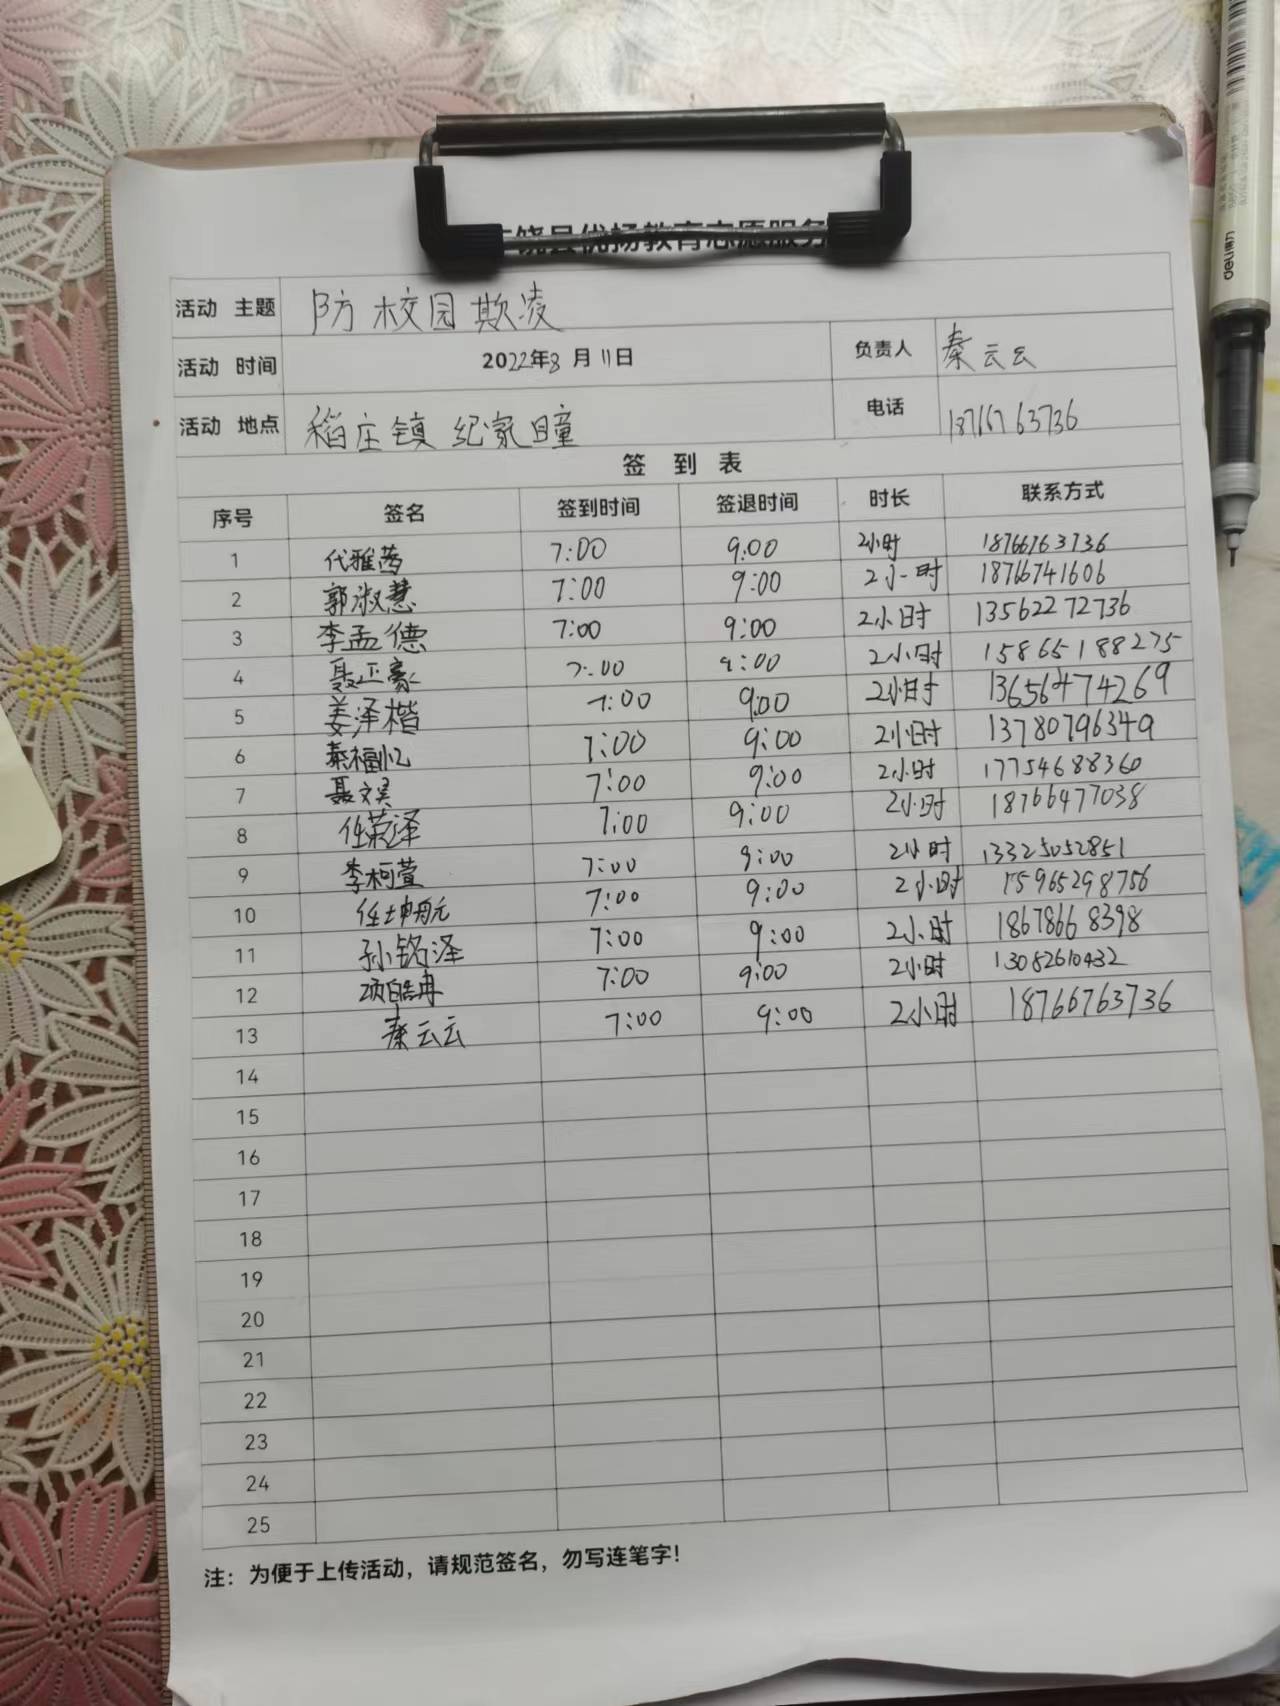 饶县优扬教育志愿服务
活动 主题 防校园欺凌
活动 时间 2022年8月11日 负责人 秦云云
活动 地点 稻庄镇纪家疃 电话 18766763736
签 到 表
序号 签名 签到时间 签退时间 时长 联系方式
1 代雅茜 7:00 9:00 2小时 18766763736
2 郭淑慧 7:00 9:00 2小时 18766741606
3 李孟德 7:00 9:00 2小时 13562272736
4 聂正豪 7:00 9:00 2小时 158651188275
5 姜泽楷 7:00 9:00 2小时 13656474269
6 秦福忆 7:00 9:00 2小时 13780796349
7 聂文昊 7:00 9:00 2小时 17754688360
8 任荣泽 7:00 9:00 2小时 18766477038
9 李柯萱 7:00 9:00 2小时 13325052851
10 7:00 9:00 2小时 15965298756
11 孙铭泽 7:00 9:00 2小时 18678668398
12 项皓冉 7:00 9:00 2小时 13082610432
13 秦云云 7:00 9:00 2小时 18766763736
14
15
16
17
18
19
20
21
22
23
24
25
注：为便于上传活动，请规范签名，勿写连笔字！
deli得力